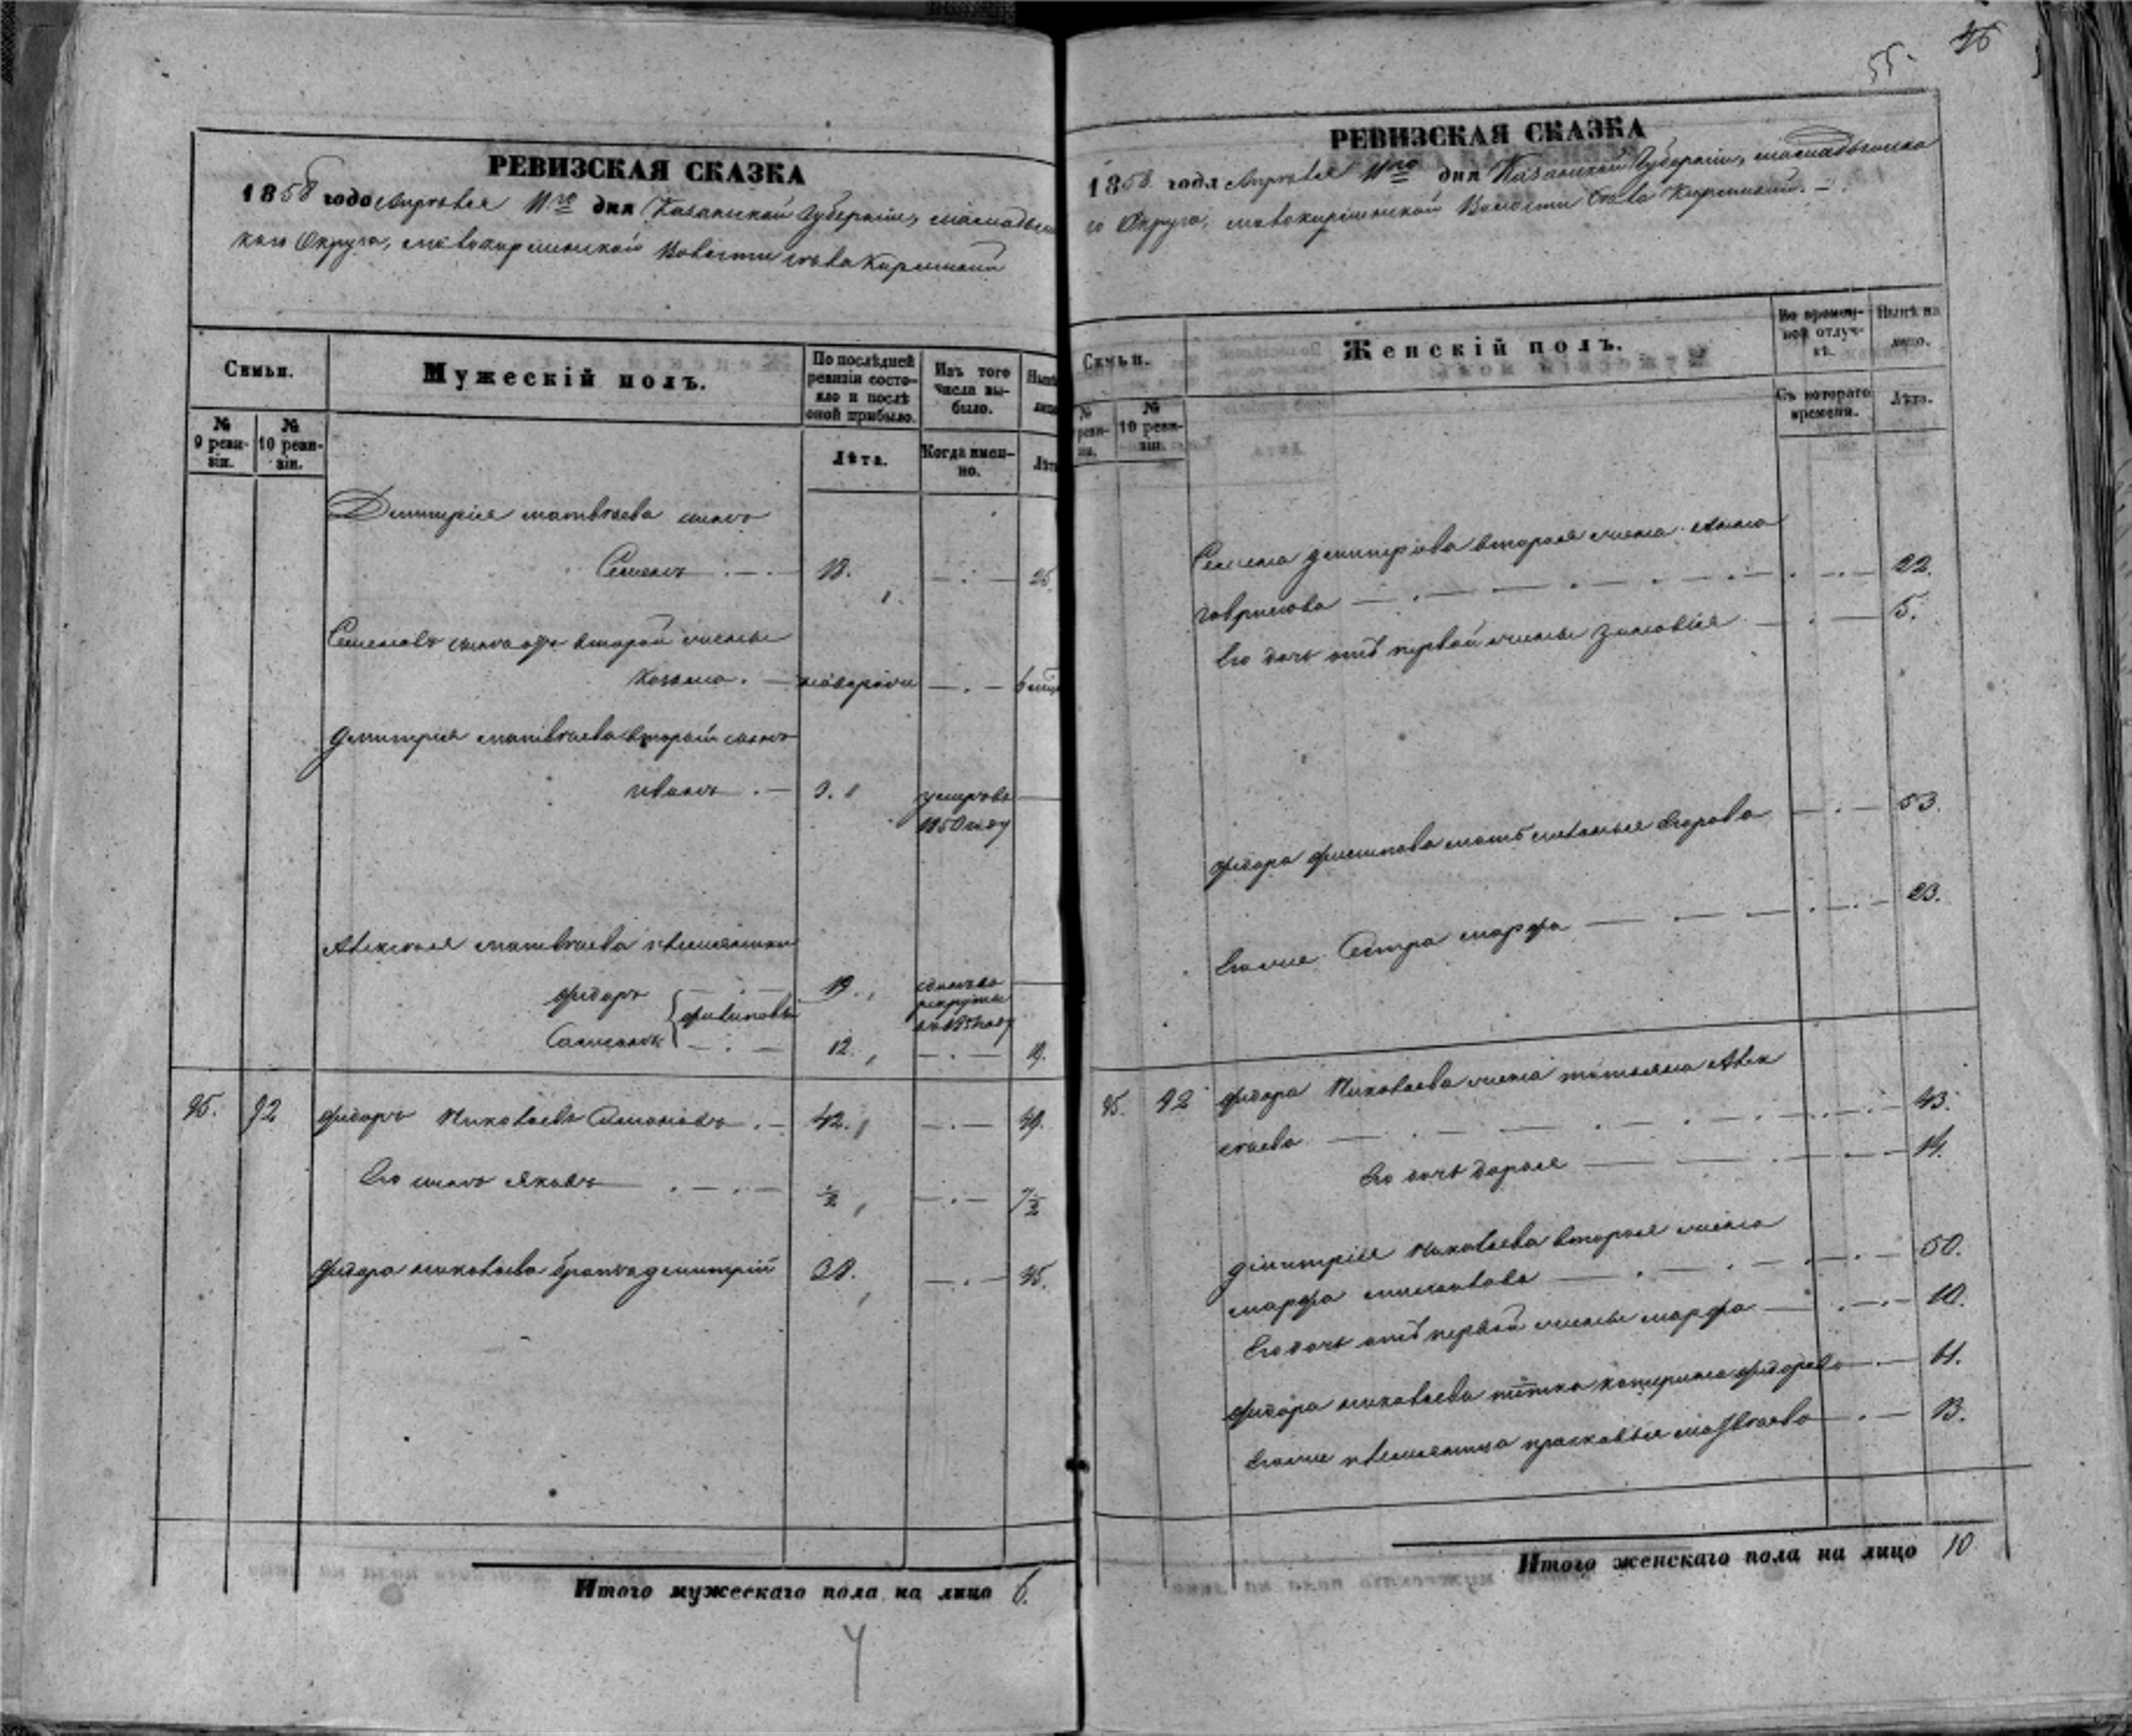 РЕВИЗСКАЯ СКАЗКА
1858 года Апрѣля 11го дня Казанской Губерніи, мамадыш
каго Округа, Волости Кирмѣней
Семьи.
Мужескій полъ.
По послѣдней ревизіи состояло и послѣ оной прибыло.
Изъ того числа выбыло.
№ 9 ревизіи.
№ 10 ревизіи.
Лѣта.
Когда именно.
Лѣта
Дмитрія матвѣева сынъ
Семенъ 18. 25
Семеновъ сынъ отъ второй жены
Козьма. новорожд
Дмитрія матвѣева второй сынъ
иванъ умеръ въ
1850 году
Алексѣя матвѣева племянники
федоръ 19.
филиповы
Симионъ 12. 19.
рекруты
95. 92 федоръ Николаевъ Симионовъ 42. 49.
Его сынъ Яковъ ½ 7½
федора николаева братъ дмитрій 38. 45.
Итого мужескаго пола на лицо 6.
55. 46
РЕВИЗСКАЯ СКАЗКА
1858 года Апрѣля 11го дня Казанской Губерніи, мамадышска
го Округа, Волости Села Кирмѣней.
Семьи.
Женскій полъ.
Во временной отлучкѣ.
Нынѣ на лицо.
№ 10 ревизіи.
Съ котораго времени.
Лѣта.
Семена дмитріева вторая жена Анна
гаврилова 22.
Его дочь отъ первой жены Зиновія 5.
федора филипова мать маланья Егорова 53.
Егоже Сестра марфа 23.
95. 92 федора Николаева жена татьяна Алек
сѣева 43.
Его дочь дарья 14.
дмитрія Николаева вторая жена
марфа 50.
Его дочь отъ первой жены марфа 10.
федора николаева тётка катерина федорова 61.
Егоже племянница прасковья матвѣева 13.
Итого женскаго пола на лицо 10